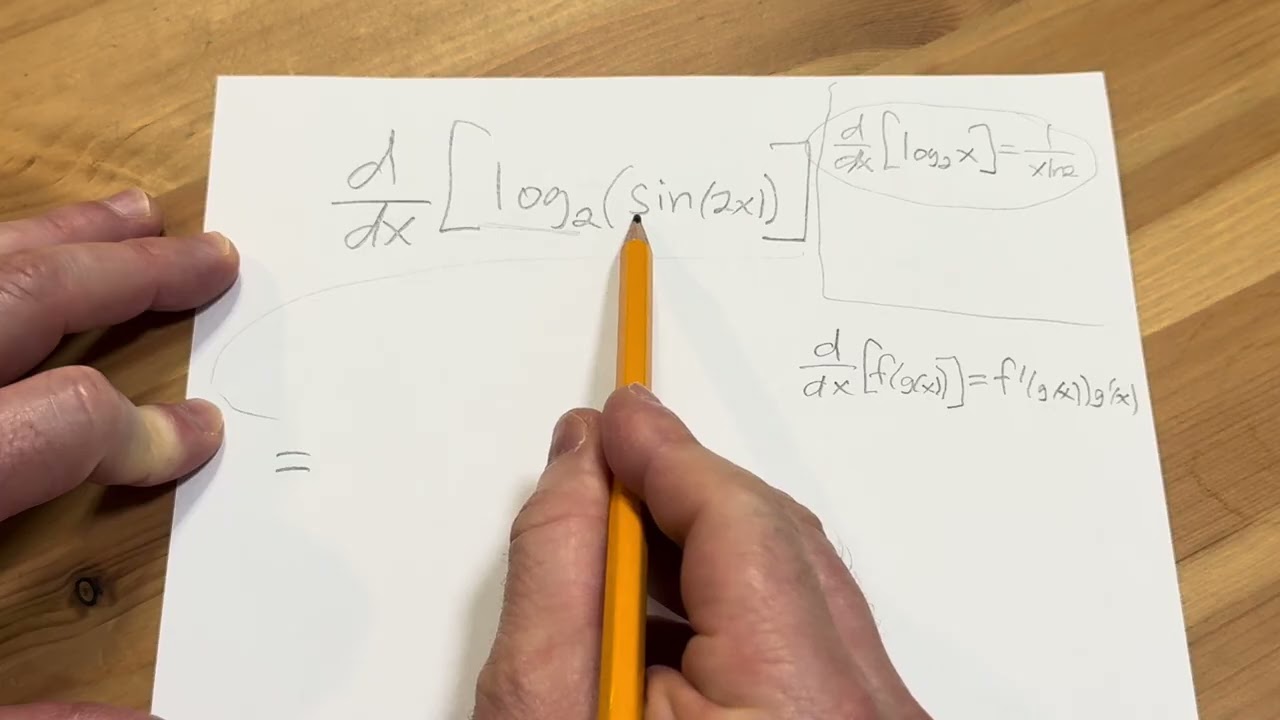 d/dx [log₂(sin(2x))]
d/dx [log₂x] = 1/xln2
d/dx [f(g(x))] = f'(g(x))g'(x)
=